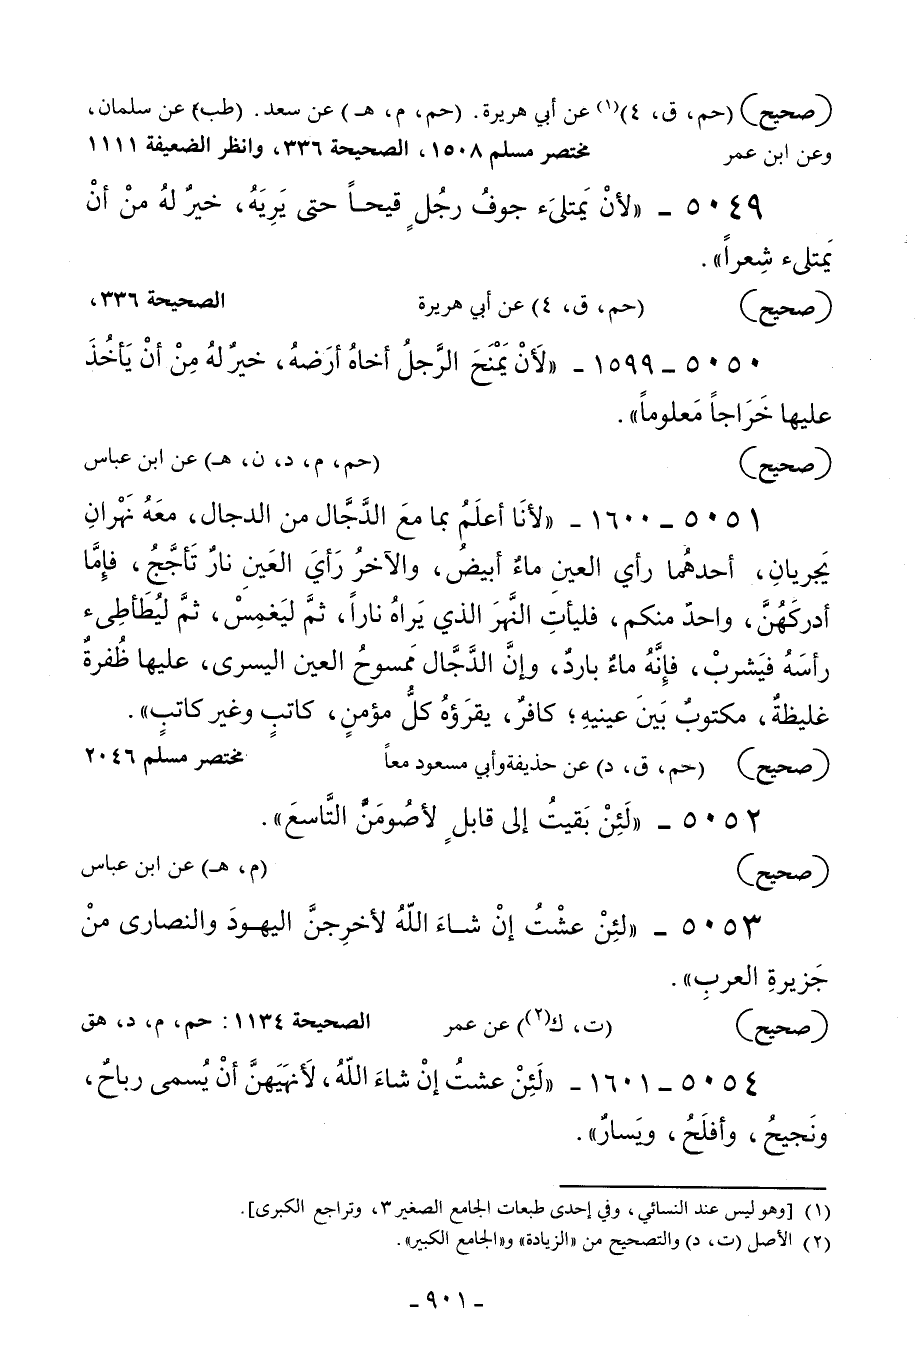 (صحيح) (حم، ق، ٤)(١) عن أبي هريرة. (حم، م، هـ) عن سعد. (طب) عن سلمان،
وعن ابن عمر مختصر مسلم ١٥٠٨، الصحيحة ٣٣٦، وانظر الضعيفة ١١١١
٥٠٤٩ ـ «لأنْ يَمتلىَء جوفُ رجُلٍ قيحـاً حتى يَرِيَهُ، خيرٌ لهُ منْ أنْ
يَمتلىء شِعراً».
(صحيح) (حم، ق، ٤) عن أبي هريرة الصحيحة ٣٣٦،
٥٠٥٠ ـ ١٥٩٩ ـ «لَأنْ يَمْنَحَ الرَّجلُ أخاهُ أرَضهُ، خيرٌ لهُ مِنْ أنْ يَأخُذَ
عليها خَرَاجاً مَعلوماً».
(صحيح) (حم، م، د، ن، هـ) عن ابن عباس
٥٠٥١ ـ ١٦٠٠ ـ «لأنَا أعلَمُ بما معَ الدَّجَّال من الدجال، معَهُ نَهْرانِ
يَجريانِ، أحدهُما رأي العينِ ماءٌ أبيضُ، والآخرُ رَأيَ العَينِ نارٌ تَأجَّجُ، فإِمَّا
أدركَهُنَّ، واحدٌ منكم، فليأتِ النَّهرَ الذي يَراهُ ناراً، ثمَّ ليَغمِسْ، ثمَّ ليُطَأطِىء
رأسَهُ فيَشربْ، فإِنَّهُ ماءٌ باردٌ، وإنَّ الدَّجَّال مَمسوحُ العين اليسرى، عليها ظُفرةٌ
غليظةٌ، مكتوبٌ بَينَ عينيهِ؛ كافرٌ، يقرَؤهُ كلُّ مؤمنٍ، كاتبٍ وغير كاتبٍ».
(صحيح) (حم، ق، د) عن حذيفة وأبي مسعود معاً مختصر مسلم ٢٠٤٦
٥٠٥٢ ـ «لَئِنْ بَقيتُ إلى قابلٍ لأصُومَنَّ التَّاسعَ».
(صحيح) (م، هـ) عن ابن عباس
٥٠٥٣ ـ «لئِنْ عشْتُ إنْ شـاءَ اللّهُ لأخرِجنَّ اليهـودَ والنصارى منْ
جَزيرةِ العربِ».
(صحيح) (ت، ك(٢)) عن عمر الصحيحة ١١٣٤: حم، م، د، هق
٥٠٥٤ ـ ١٦٠١ ـ «لَئِنْ عشتُ إنْ شاءَ اللّهُ، لَأنهَيَهنَّ أنْ يُسمى رباحٌ،
ونَجيحُ، وأفلَحُ، ويَسارٌ».
(١) [وهو ليس عند النسائي، وفي إحدى طبعات الجامع الصغير ٣، وتراجع الكبرى].
(٢) الأصل (ت، د) والتصحيح من «الزيادة» و«الجامع الكبير».
ـ ٩٠١ ـ